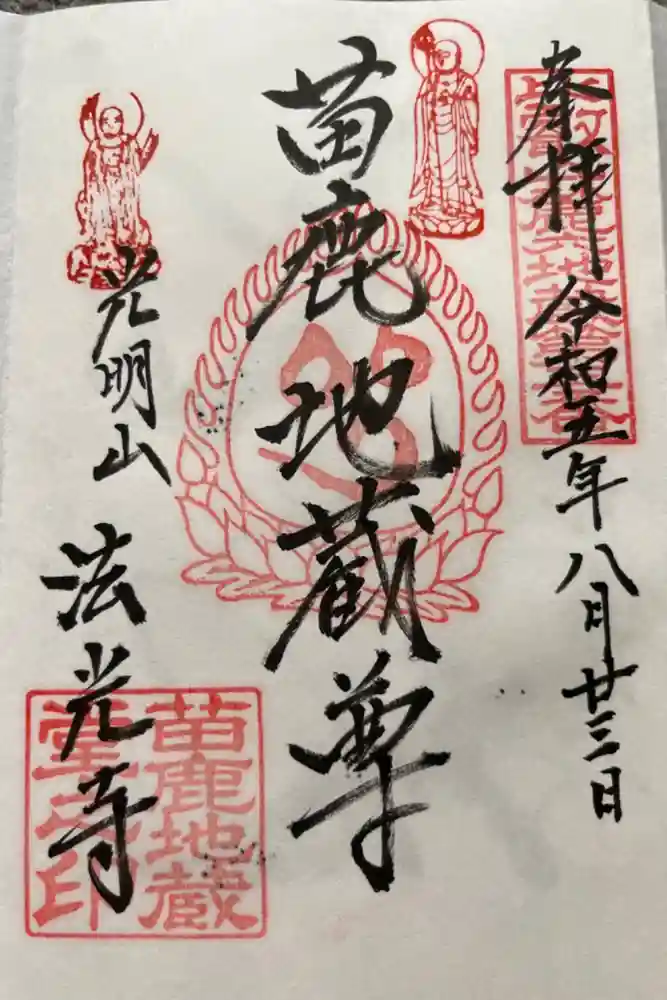 奉拝
令和五年八月廿三日
苗鹿地蔵尊
光明山
法光寺
苗鹿地蔵
堂之印